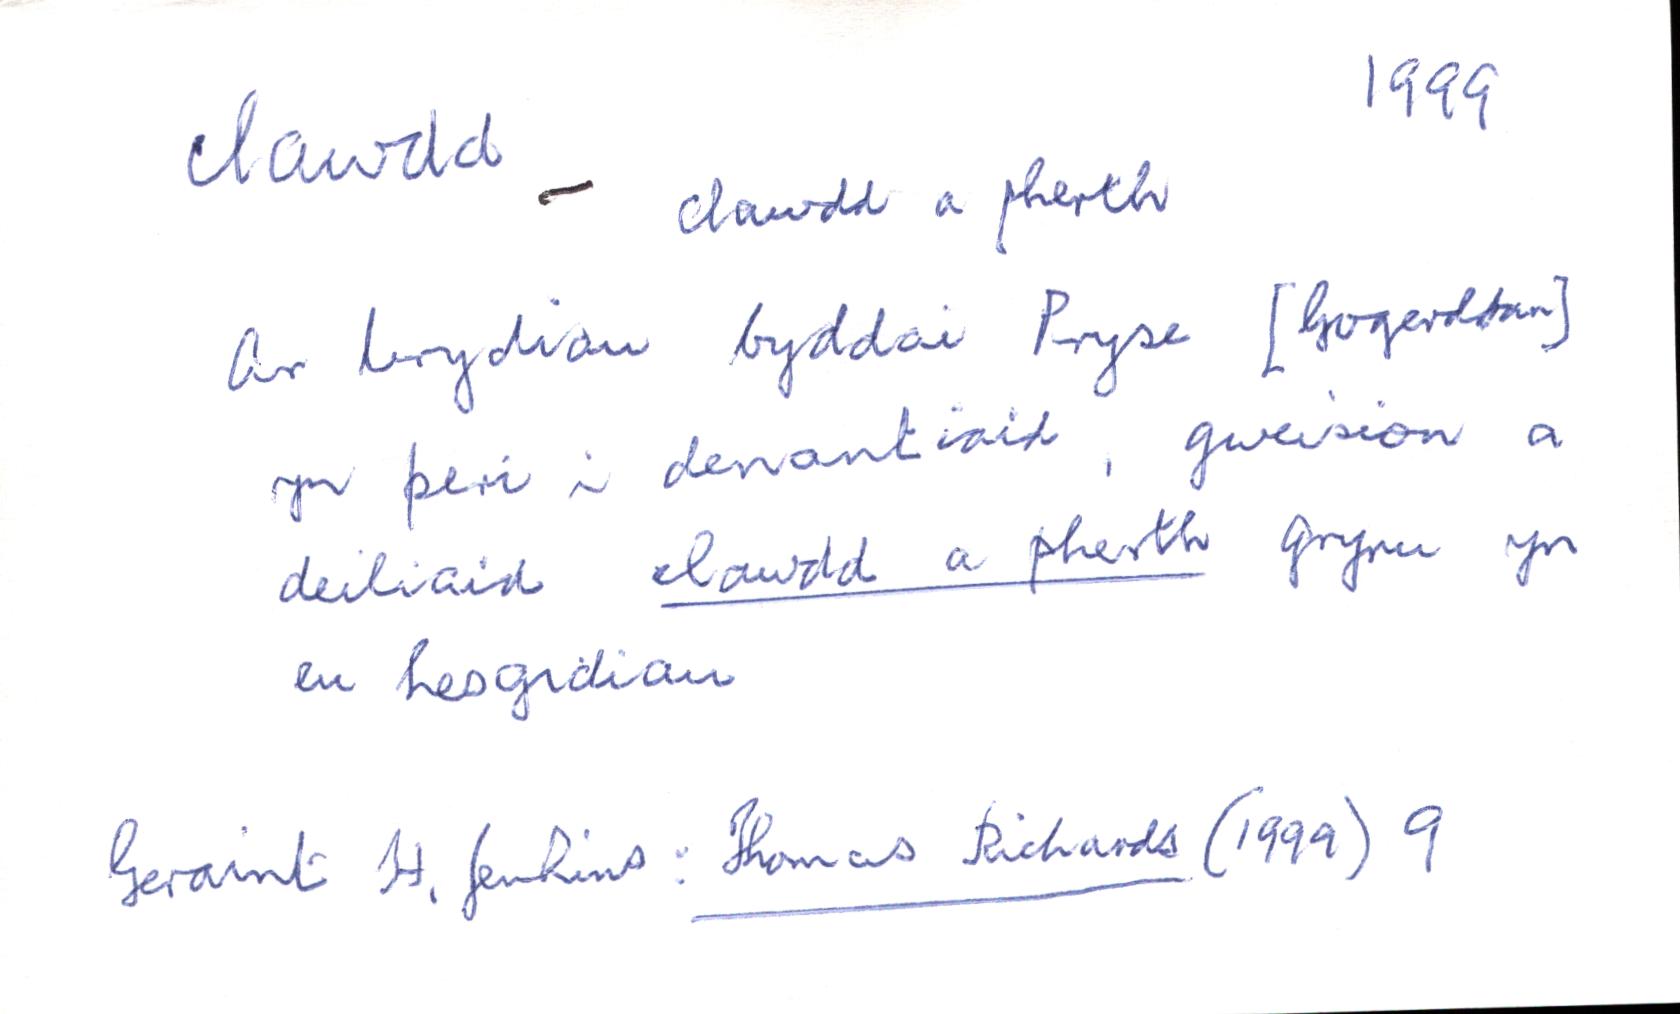 1999
clawdd – clawdd a pherth
Ar brydiau byddai Pryse [Gogerddan]
yn peri i denantiaid, gweision a
deiliaid clawdd a pherth grynu yn
eu hesgidiau
Geraint H. Jenkins: Thomas Richards (1999) 9